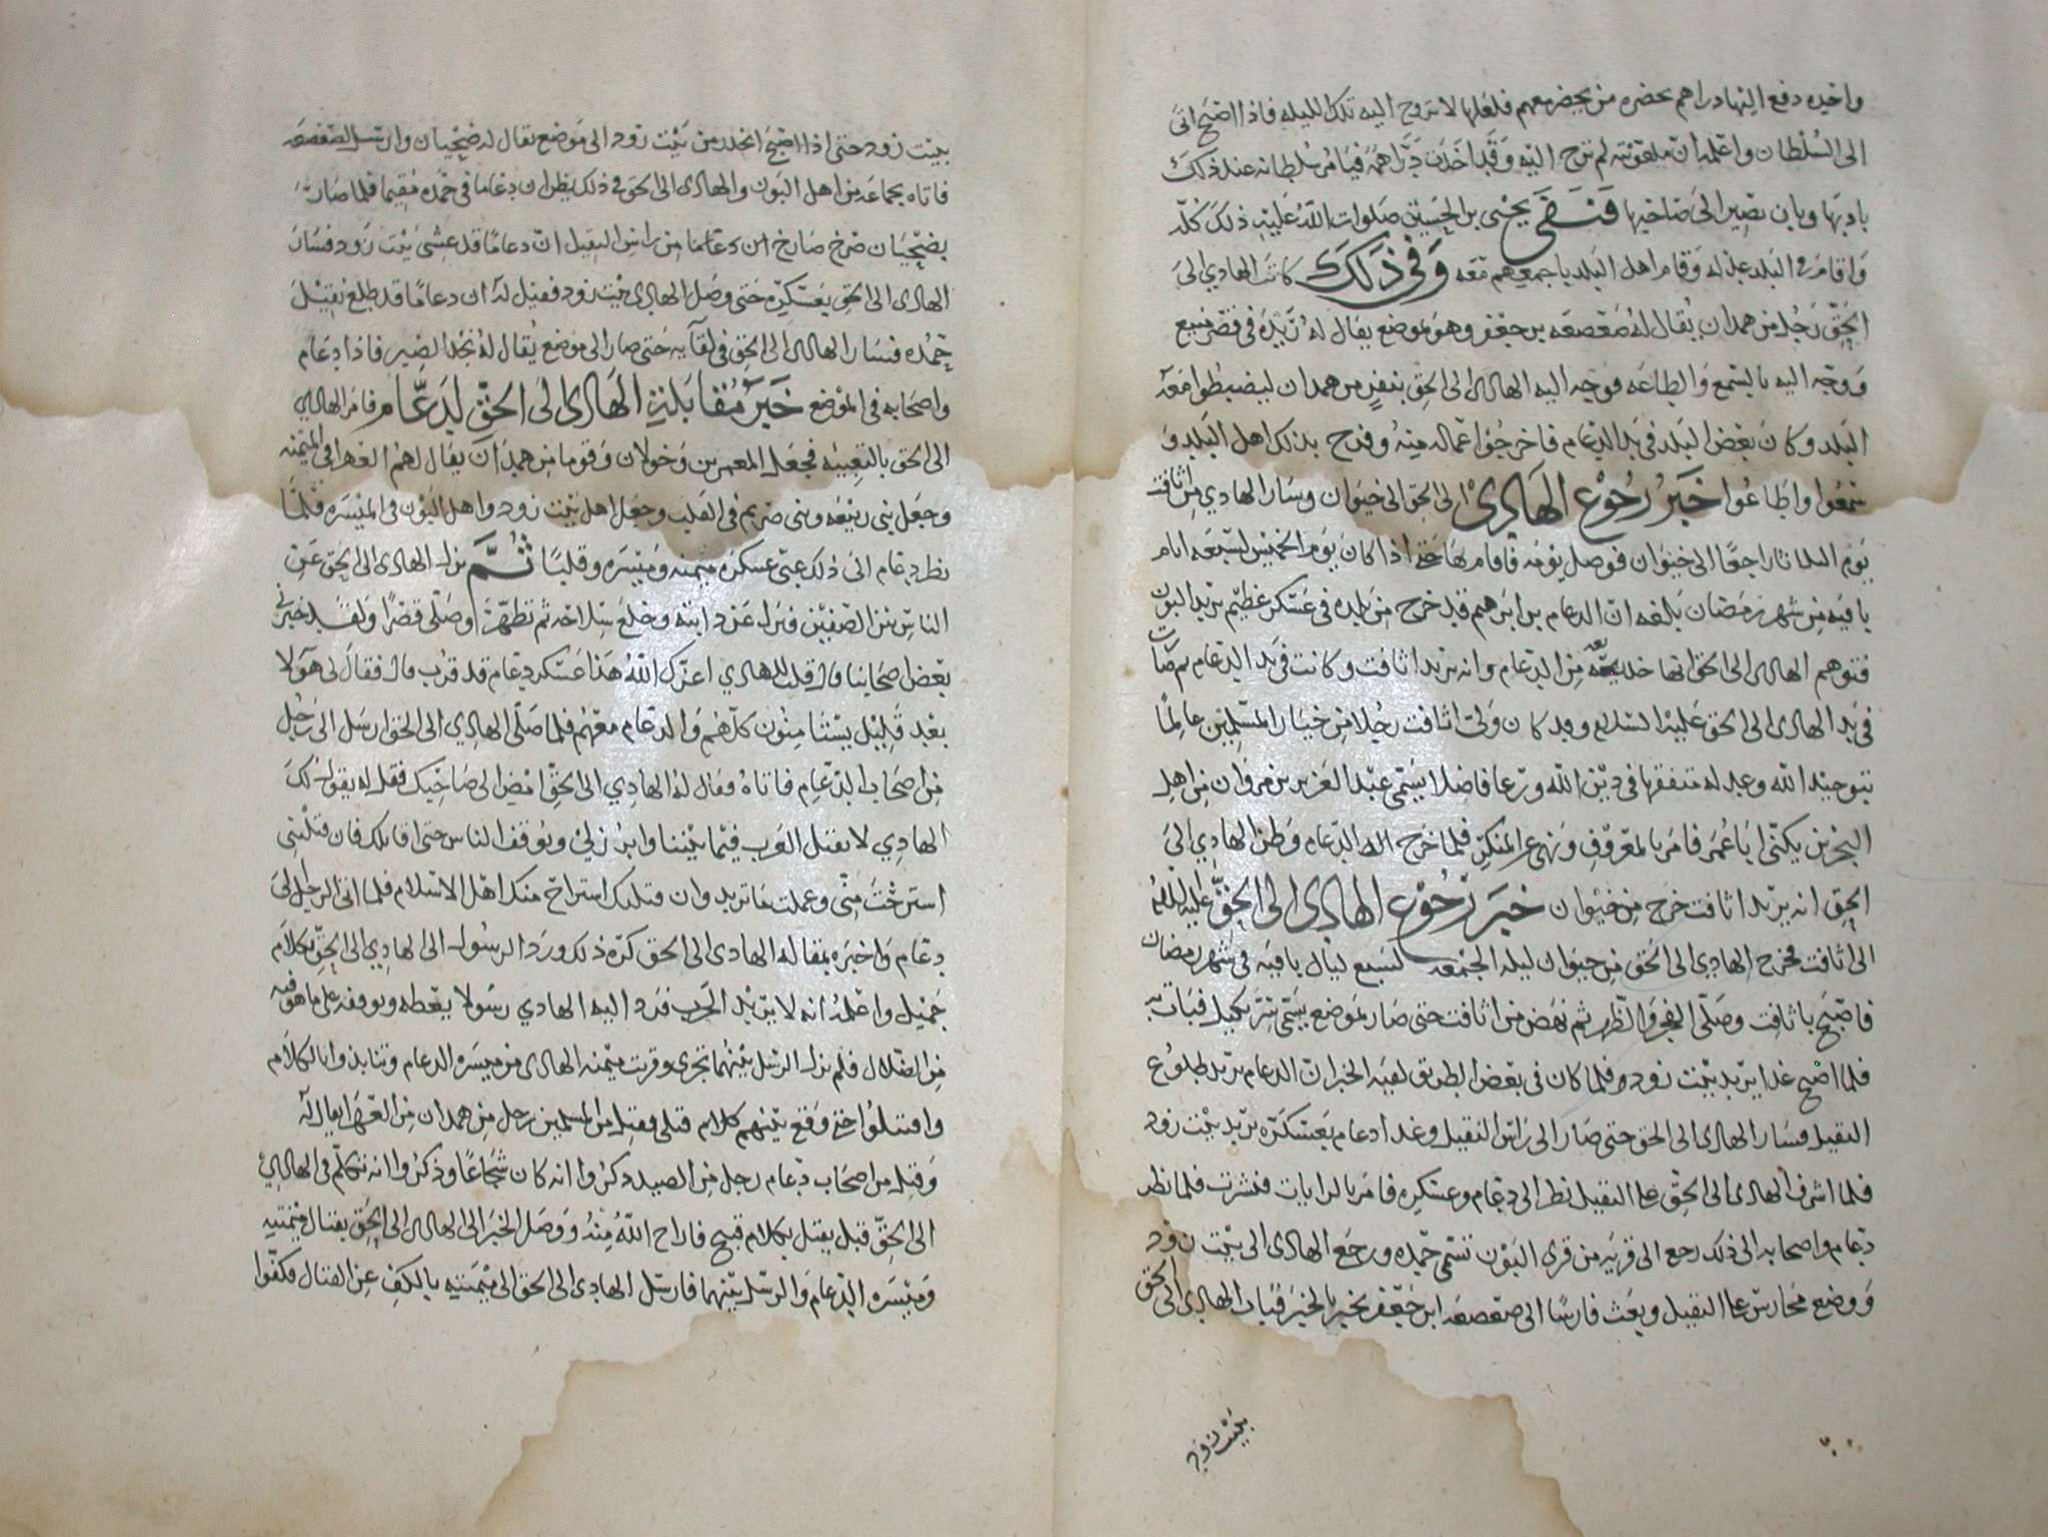 واخيه دفع اليها دراهم بحضره من يحضر معهم فلعلها لا تروح اليه تلك الليله فاذا اصبح اتى
الى السلطان واعلمه ان ملعقته لم ترح اليه وقد اخذت دراهمه فيامر سلطانه عند ذلك
بادبها وبان تصير الى صاحبها فنفى يحيى بن الحسين صلوات الله عليه ذلك كله
واقام في البلد عدله وقام اهل البلد باجمعهم معه وفي ذلك كاتب الهادي الى
الحق رجل من همدان يقال له صعصعه بن جعفر وهو بموضع يقال له ريده في قصر منيع
ووجه اليه بالسمع والطاعه فوجه اليه الهادى الى الحق بنفر من همدان ليضبطوا معه
البلد وكان بعض البلد في يد الدعام فاخرجوا عماله منه وفرح بذلك اهل البلد و
سمعوا واطاعوا خبر رجوع الهادى الى الحق الى خيوان وسار الهادي من اثافت
يوم الثلاثا راجعا الى خيوان فوصل يومه فاقام بها حتى اذا كان يوم الخميس لسبعه ايام
باقيه من شهر رمضان بلغه ان الدعام بن ابرهيم قد خرج من بلده في عسكر عظيم يريد البون
فتوهم الهادى الى الحق انها خديعه من الدعام وانه يريد اثافت وكانت في يد الدعام ثم صارت
في يد الهادى الى الحق عليه السلام وقد كان ولى اثافت رجلا من خيار المسلمين عالما
بتوحيد الله وعدله متفقها في دين الله ورعا فاضلا يسمى عبد العزيز بن مروان من اهل
البحرين يكنى ابا عمر فامر بالمعروف ونهى عن المنكر فلما خرج الدعام وظن الهادي الى
الحق انه يريد اثافت خرج من خيوان خبر رجوع الهادى الى الحق عليه السلم
الى اثافت فخرج الهادي الى الحق من خيوان ليله الجمعه لسبع ليال باقيه في شهر رمضان
فاصبح باثافت وصلى الفجر والظهر ثم نهض من اثافت حتى صار بموضع يسمى فبات به
فلما اصبح غدا يريد بيت زود فلما كان في بعض الطريق لقيه الخبر ان الدعام يريد طلوع
النقيل فسار الهادى الى الحق حتى صار الى راس النقيل وغدا دعام بعسكره يريد بيت زود
فلما اشرف الهادى الى الحق على النقيل نظر الى دعام وعسكره فامر بالرايات فنشرت فلما نظر
دعام واصحابه الى ذلك رجع الى قريه من قرى البون تسمى حمده ورجع الهادى الى بيت زود
ووضع محارس على النقيل وبعث فارسا الى صعصعه ابن جعفر يخبر بالخبر فبات الهادى الى الحق
ببيت زود
ببيت زود حتى اذا اصبح انحدر من بيت زود الى موضع يقال له ضحيان وارسل لصعصعه
فاتاه بجماعه من اهل البون والهادى الى الحق في ذلك يظن ان دعاما في حمده مقيما فلما صار
بضحيان صرخ صارخ من راس النقيل ان دعاما قد غشى بيت زود فسار
الهادى الى الحق بعسكره حتى وصل الهادى بيت زود فقيل له ان دعاما قد طلع نقيل
حمده فسار الهادى الى الحق في لقايه حتى صار الى موضع يقال له نجد الضير فاذا دعام
واصحابه في الموضع خبر مقابلة الهادى الى الحق لدعام فامر الهادي
الى الحق بالتعبيه فجعل وخولان وقوما من همدان يقال لهم في الميمنه
وجعل بني ربيعه وبني صريم في القلب وجعل اهل بيت زود واهل البون في الميسره فلما
نظر دعام الى ذلك عبى عسكره ميمنه وميسره وقلبا ثم نزل الهادى الى الحق عن
الناس بين الصفين فنزل عن دابته وخلع سلاحه ثم تطهر وصلى قصرا ولقد خبرني
بعض اصحابنا قال قلت للهادي اعزك الله هذا عسكر دعام قد قرب قال فقال لي هؤلا
بعد قليل يستامنون كلهم والدعام معهم فلما صلى الهادي الى الحق ارسل الى رجل
من اصحاب الدعام فاتاه فقال له الهادي الى الحق امض الى صاحبك فقل له يقول لك
الهادي لا يقتل العرب فيما بيننا وابرز لي ويوقف الناس حتى اقاتلك فان قتلتني
استرحت مني وعملت ما تريد وان قتلتك استراح منك اهل الاسلام فلما اتى الرجل الى
دعام واخبره بمقاله الهادى الى الحق كره ذلك ورد الرسول الى الهادي الى الحق بكلام
جميل واعلمه انه لا يريد الحرب فرد اليه الهادي رسولا يعظه ويوقفه على ما هو فيه
من الضلال فلم تزل الرسل بينهما تجرى وقربت ميمنه الهادى من ميسره الدعام وتنابذوا بالكلام
واقتتلوا حتى وقع بينهم كلام قتلى فقتل من المسلمين رجل من همدان من يقال له
وقتل من اصحاب دعام رجل من الصيد ذكروا انه كان شجاعا وذكروا انه تكلم في الهادي
الى الحق قبل يقتل بكلام قبيح فاراح الله منه ووصل الخبر الى الهادى الى الحق بقتال ميمنته
وميسره الدعام والرسل بينهما فارسل الهادى الى الحق الى ميمنته بالكف عن القتال فكفوا